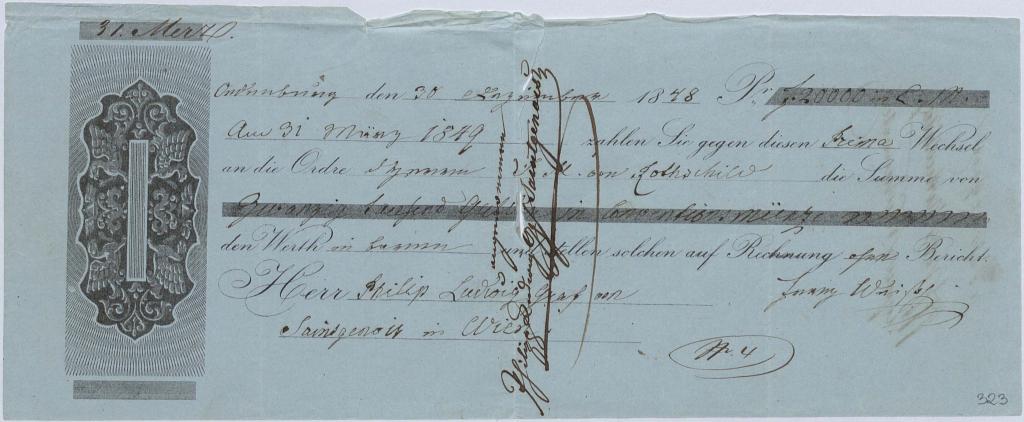 31. Merz.
den 30 1848 Pr. f 20000 in C. M.
Am 31 März 1849 zahlen Sie gegen diesen Prima Wechsel
an die Ordre S. M. von Rothschild die Summe von
Zwanzig tausend Gulden in Conventions Münze
den Werth in baarem und stellen solchen auf Rechnung ohne Bericht.
Herr Philip Ludwig Graf von
Saintgenois in Wien
angenommen
Philip Ludwig Gf Saintgenois
Nr. 4
323